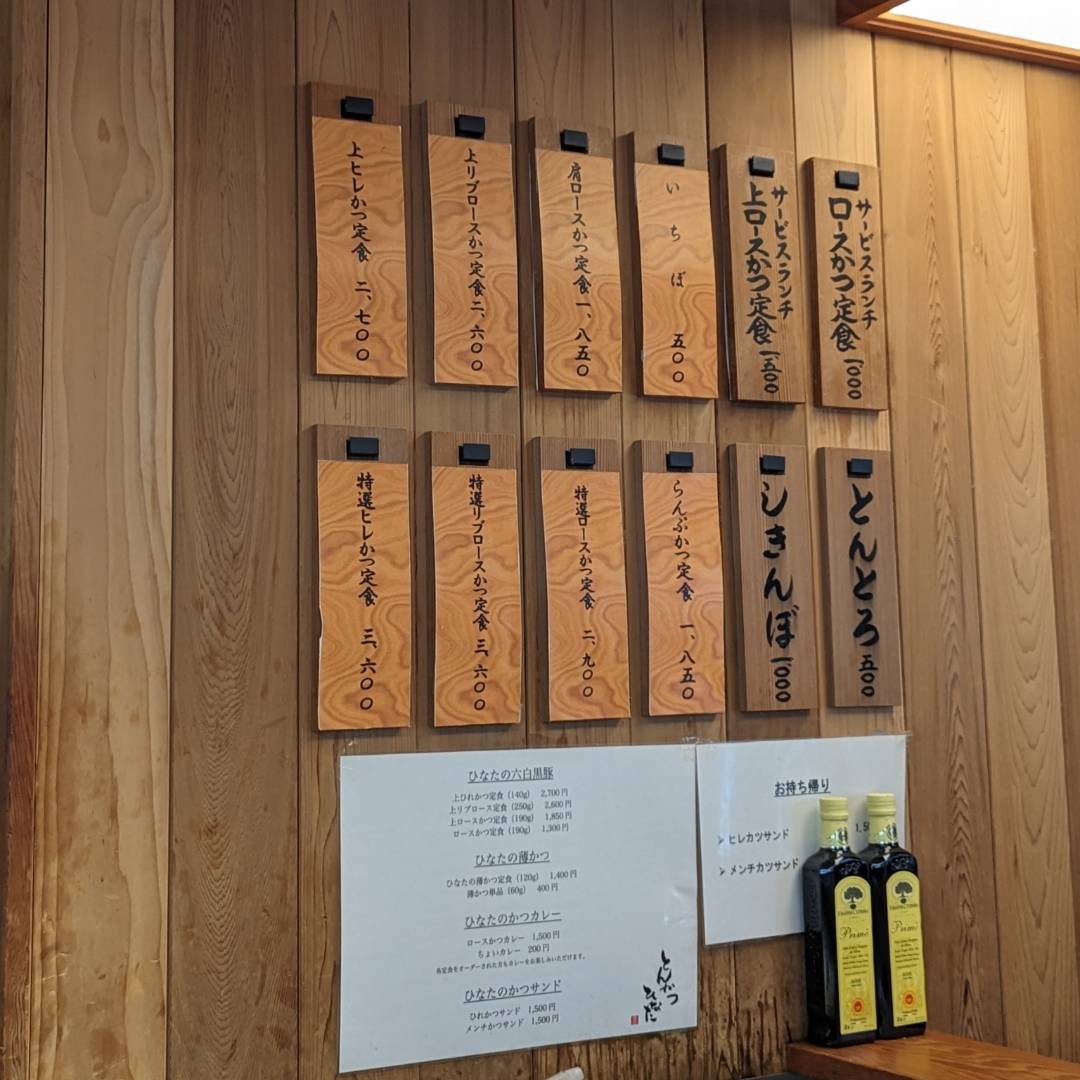 サービスランチ
ロースかつ定食 一、〇〇〇
サービスランチ
上ロースかつ定食 一、五〇〇
いちぼ 五〇〇
肩ロースかつ定食 一、八五〇
上リブロースかつ定食 二、六〇〇
上ヒレかつ定食 二、七〇〇
とんとろ 五〇〇
しきんぼ 一、〇〇〇
らんぷかつ定食 一、八五〇
特選ロースかつ定食 二、九〇〇
特選リブロースかつ定食 三、六〇〇
特選ヒレかつ定食 三、六〇〇
ひなたの六白黒豚
上ひれかつ定食（140g） 2,700円
上リブロース定食（250g） 2,600円
上ロースかつ定食（190g） 1,850円
ロースかつ定食（190g） 1,300円
ひなたの薄かつ
ひなたの薄かつ定食（120g） 1,400円
薄かつ単品（60g） 400円
ひなたのかつカレー
ロースかつカレー 1,500円
ちょいカレー 200円
各定食をオーダーされた方もカレーをお楽しみいただけます。
ひなたのかつサンド
ひれかつサンド 1,500円
メンチかつサンド 1,500円
とんかつ
ひなた
お持ち帰り
➢ヒレカツサンド
➢メンチカツサンド
Primo
Primo